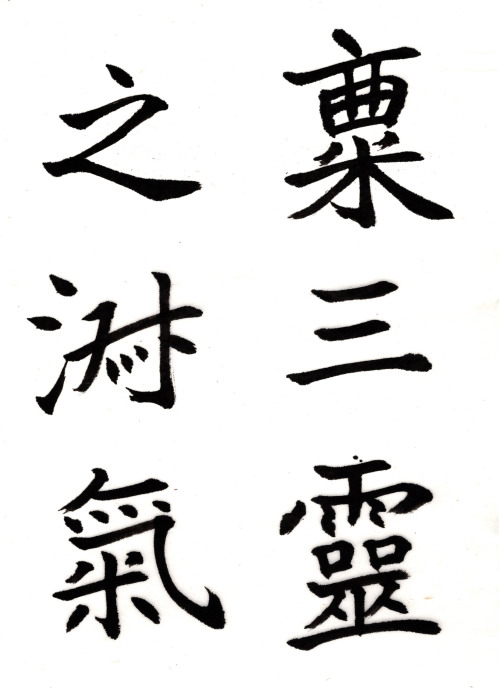 稟三靈
之淑氣